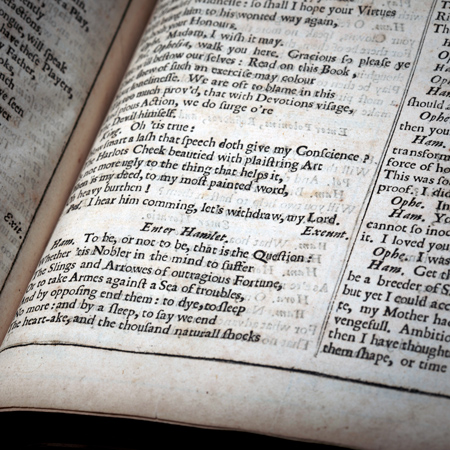 ngue, will speak
Father
Players
Exit.
shall I hope your Virtues
to his wonted way again,
Honours.
Madam, I wish it may.
Ophelia, walk you here. Gracious so please ye
bestow our selves: Read on this Book,
show of such an exercise may colour
lonlinesse. We are oft to blame in this
too much prov'd, that with Devotions visage,
pious Action, we do surge o're
Devil himself.
Oh 'tis true:
smart a lash that speech doth give my Conscience?
Harlots Cheek beautied with plaistring Art
not more ugly to the thing that helps it,
is my deed, to my most painted word,
heavy burthen!
I hear him comming, let's withdraw, my Lord.
Exeunt.
Enter Hamlet.
Ham. To be, or not to be, that is the Question:
Whether 'tis Nobler in the mind to suffer
The Slings and Arrowes of outragious Fortune,
Or to take Armes against a Sea of troubles,
And by opposing end them: to dye, to sleep
No more: and by a sleep, to say we end
The heart-ake, and the thousand naturall shocks
Ham.
Oph.
Ham.
should
Ophe.
then you
Ham.
transform
force of ho
This was so
proof. I did
Ophe. In
Ham. Yo
cannot so inoc
it. I loved you
Ophe. I was
Ham. Get th
be a breeder of S
but yet I could acc
te, my Mother ha
vengefull. Ambitio
then I have thought
them shape, or time